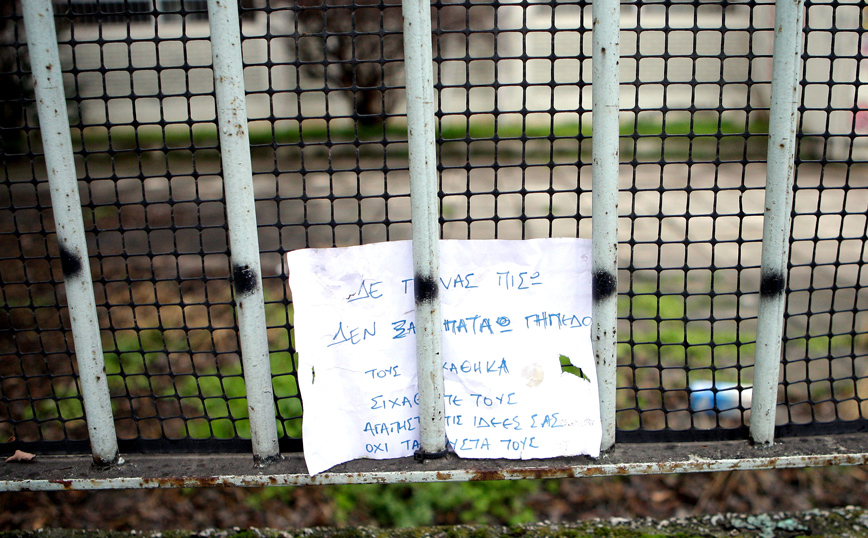 ΔΕ Γ ΝΑΣ ΠΙΣΩ
ΔΕΝ ΞΑ ΠΑΤΑΩ ΓΗΠΕΔΟ
ΤΟΥΣ ΧΑΘΗΚΑ
ΣΙΧΑΘ ΤΕ ΤΟΥΣ
ΑΓΑΠΗΣΤ ΤΙΣ ΙΔΕΕΣ ΣΑΣ
ΟΧΙ ΤΑ ΟΥΣΤΑ ΤΟΥΣ